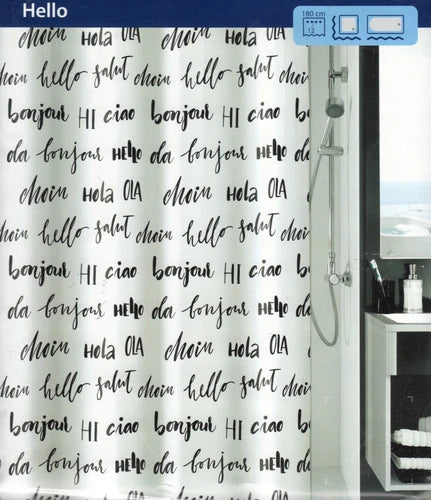 Hello
180 cm
12
choin hola OLA choin hola OLA
choin hello salut choin hello salut choin
bonjour HI ciao bonjour HI ciao b
da bonjour HELLO da bonjour HELLO da
choin hola OLA choin hola OLA
choin hello salut choin hello salut choin
bonjour HI ciao bonjour HI ciao b
da bonjour HELLO da bonjour HELLO da
choin hola OLA choin hola OLA
choin hello salut choin hello salut choin
bonjour HI ciao bonjour HI ciao b
da bonjour HELLO da bonjour HELLO da